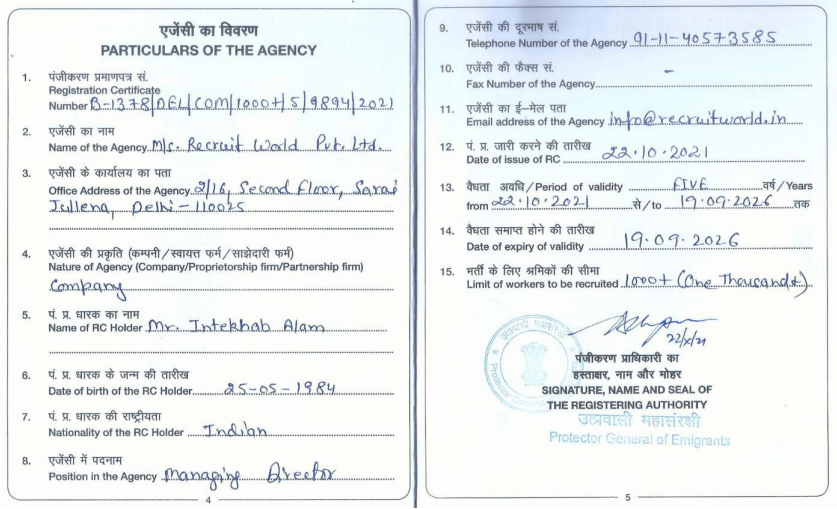 एजेंसी का विवरण
PARTICULARS OF THE AGENCY
1. पंजीकरण प्रमाणपत्र सं.
Registration Certificate
Number B-1378/DEL/COM/1000+/5/9894/2021
2. एजेंसी का नाम
Name of the Agency M/s. Recruit World Pvt. Ltd.
3. एजेंसी के कार्यालय का पता
Office Address of the Agency 2/16, Second Floor, Sarai
Jullena, Delhi - 110025
4. एजेंसी की प्रकृति (कम्पनी/स्वायत्त फर्म/साझेदारी फर्म)
Nature of Agency (Company/Proprietorship firm/Partnership firm)
Company
5. पं. प्र. धारक का नाम
Name of RC Holder Mr. Intekhab Alam
6. पं. प्र. धारक के जन्म की तारीख
Date of birth of the RC Holder 25-05-1984
7. पं. प्र. धारक की राष्ट्रीयता
Nationality of the RC Holder Indian
8. एजेंसी में पदनाम
Position in the Agency Managing Director
4
9. एजेंसी की दूरभाष सं.
Telephone Number of the Agency 91-11-40573585
10. एजेंसी की फैक्स सं.
Fax Number of the Agency -
11. एजेंसी का ई-मेल पता
Email address of the Agency info@recruitworld.in
12. पं. प्र. जारी करने की तारीख
Date of issue of RC 22.10.2021
13. वैधता अवधि/Period of validity FIVE वर्ष/Years
from 22.10.2021 से/to 19.09.2026 तक
14. वैधता समाप्त होने की तारीख
Date of expiry of validity 19.09.2026
15. भर्ती के लिए श्रमिकों की सीमा
Limit of workers to be recruited 1000+ (One Thousand+)
22/x/21
पंजीकरण प्राधिकारी का
हस्ताक्षर, नाम और मोहर
SIGNATURE, NAME AND SEAL OF
THE REGISTERING AUTHORITY
उत्प्रवासी महासंरक्षी
Protector General of Emigrants
5